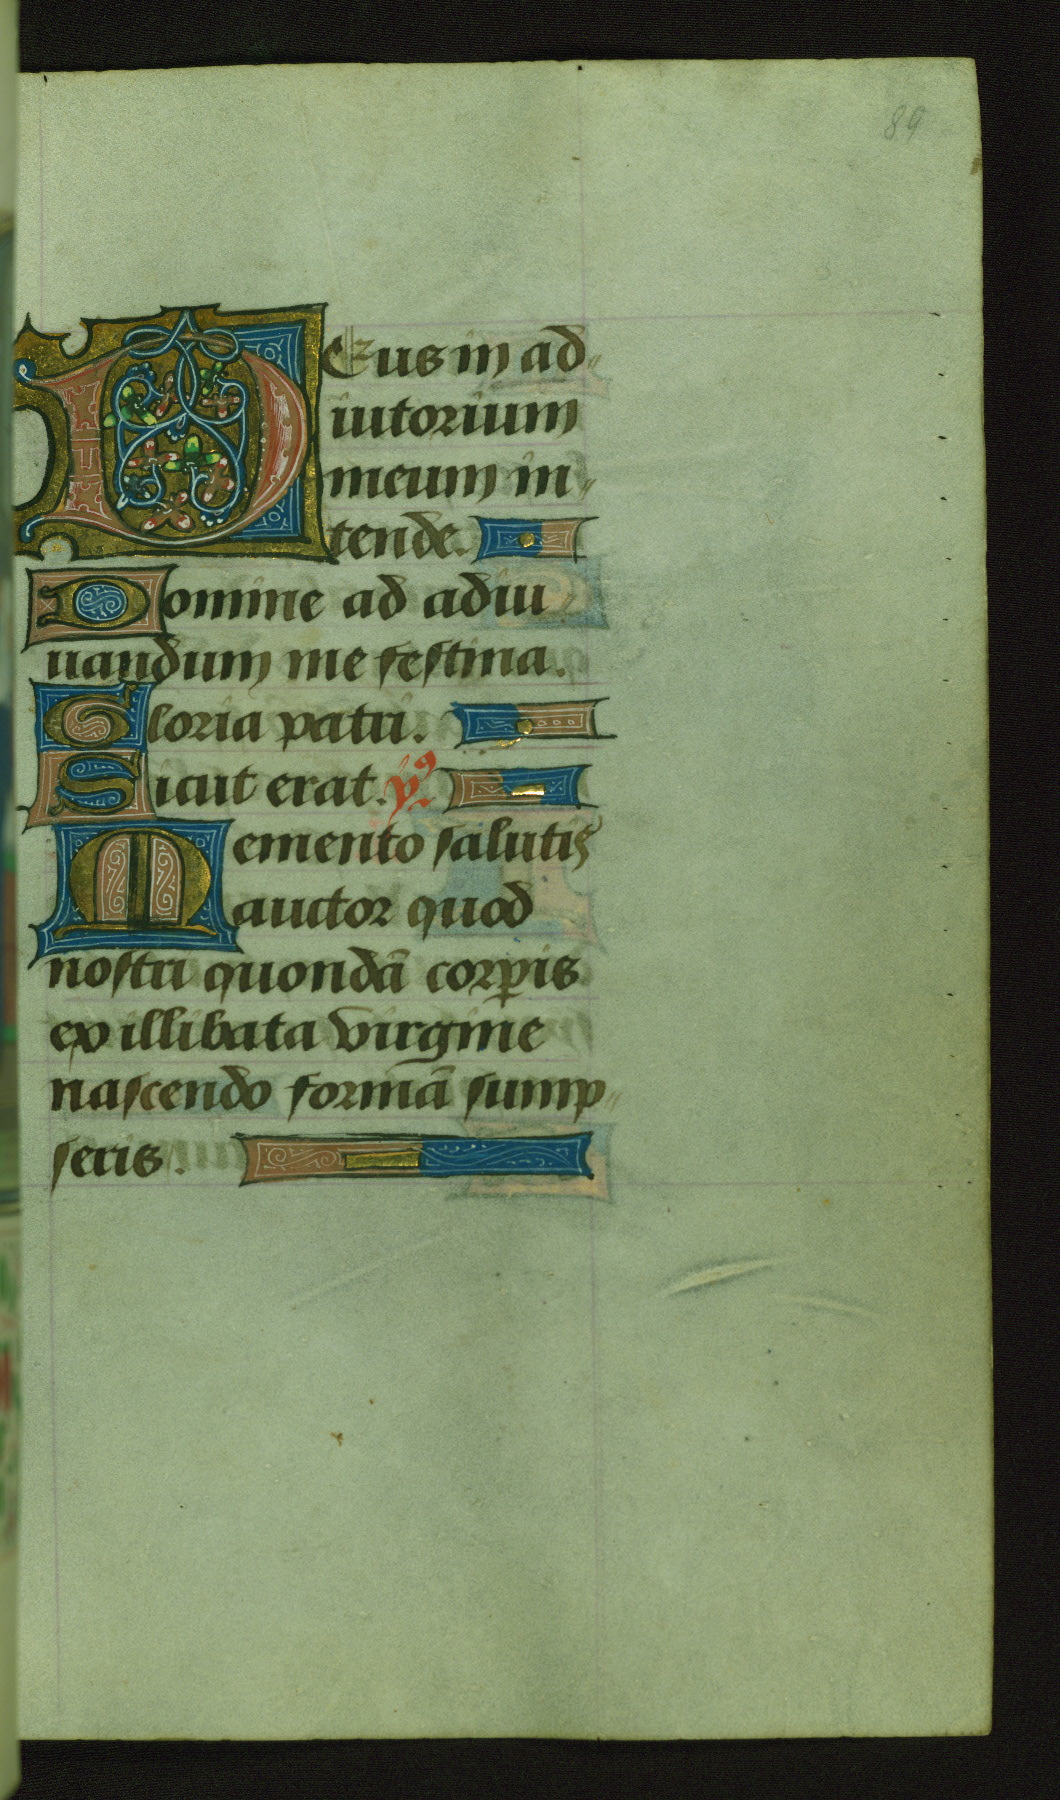 89
Deus in ad
iutorium
meum in
tende.
Domine ad adiu
uandum me festina.
Gloria patri.
Sicut erat. ỹ9
Memento salutis
auctor quod
nostri quondã corpis
ex illibata virgine
nascendo formã sump
seris.